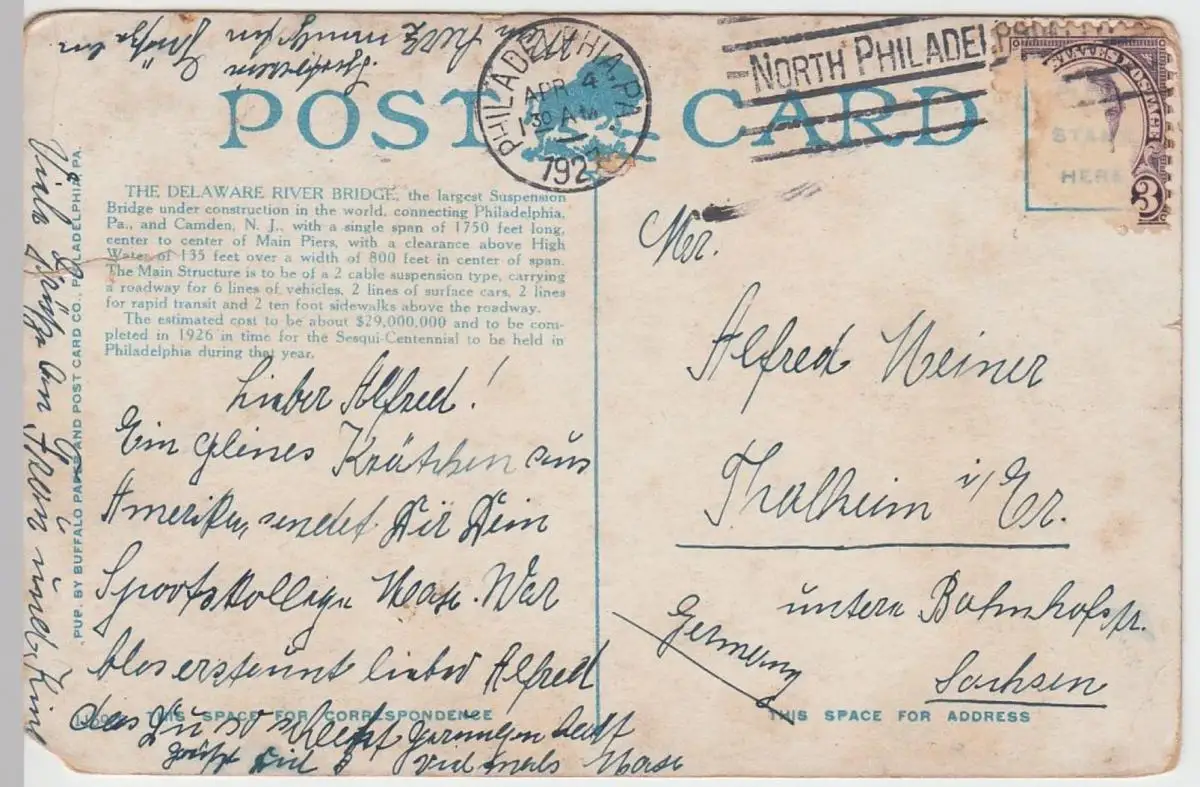 Sportverein
POST CARD
PHILADELPHIA, PA.
APR 4
1 30 AM
192
NORTH PHILADEL
POSTAGE
3
STAMP
HERE
THE DELAWARE RIVER BRIDGE, the largest Suspension
Bridge under construction in the world, connecting Philadelphia,
Pa., and Camden, N. J., with a single span of 1750 feet long,
center to center of Main Piers, with a clearance above High
Water of 135 feet over a width of 800 feet in center of span.
The Main Structure is to be of a 2 cable suspension type, carrying
a roadway for 6 lines of vehicles, 2 lines of surface cars, 2 lines
for rapid transit and 2 ten foot sidewalks above the roadway.
The estimated cost to be about $29,000,000 and to be com-
pleted in 1926 in time for the Sesqui-Centennial to be held in
Philadelphia during that year.
Lieber Alfred!
Ein gleines Krätchen aus
Amerika, sendet Dir Dein
Sportskollege Max. War
blos erstaunt lieber Alfred
das Du so schlecht gerungen hast
grüßt vielmals Max
Viele Grüße an Frau und Kind
PUB. BY BUFFALO PAPER AND POST CARD CO., PHILADELPHIA, PA.
THIS SPACE FOR CORRESPONDENCE
Mr.
Alfred Meiner
Thalheim i/Er.
untere Bahnhofstr.
Sachsen
Germany
THIS SPACE FOR ADDRESS